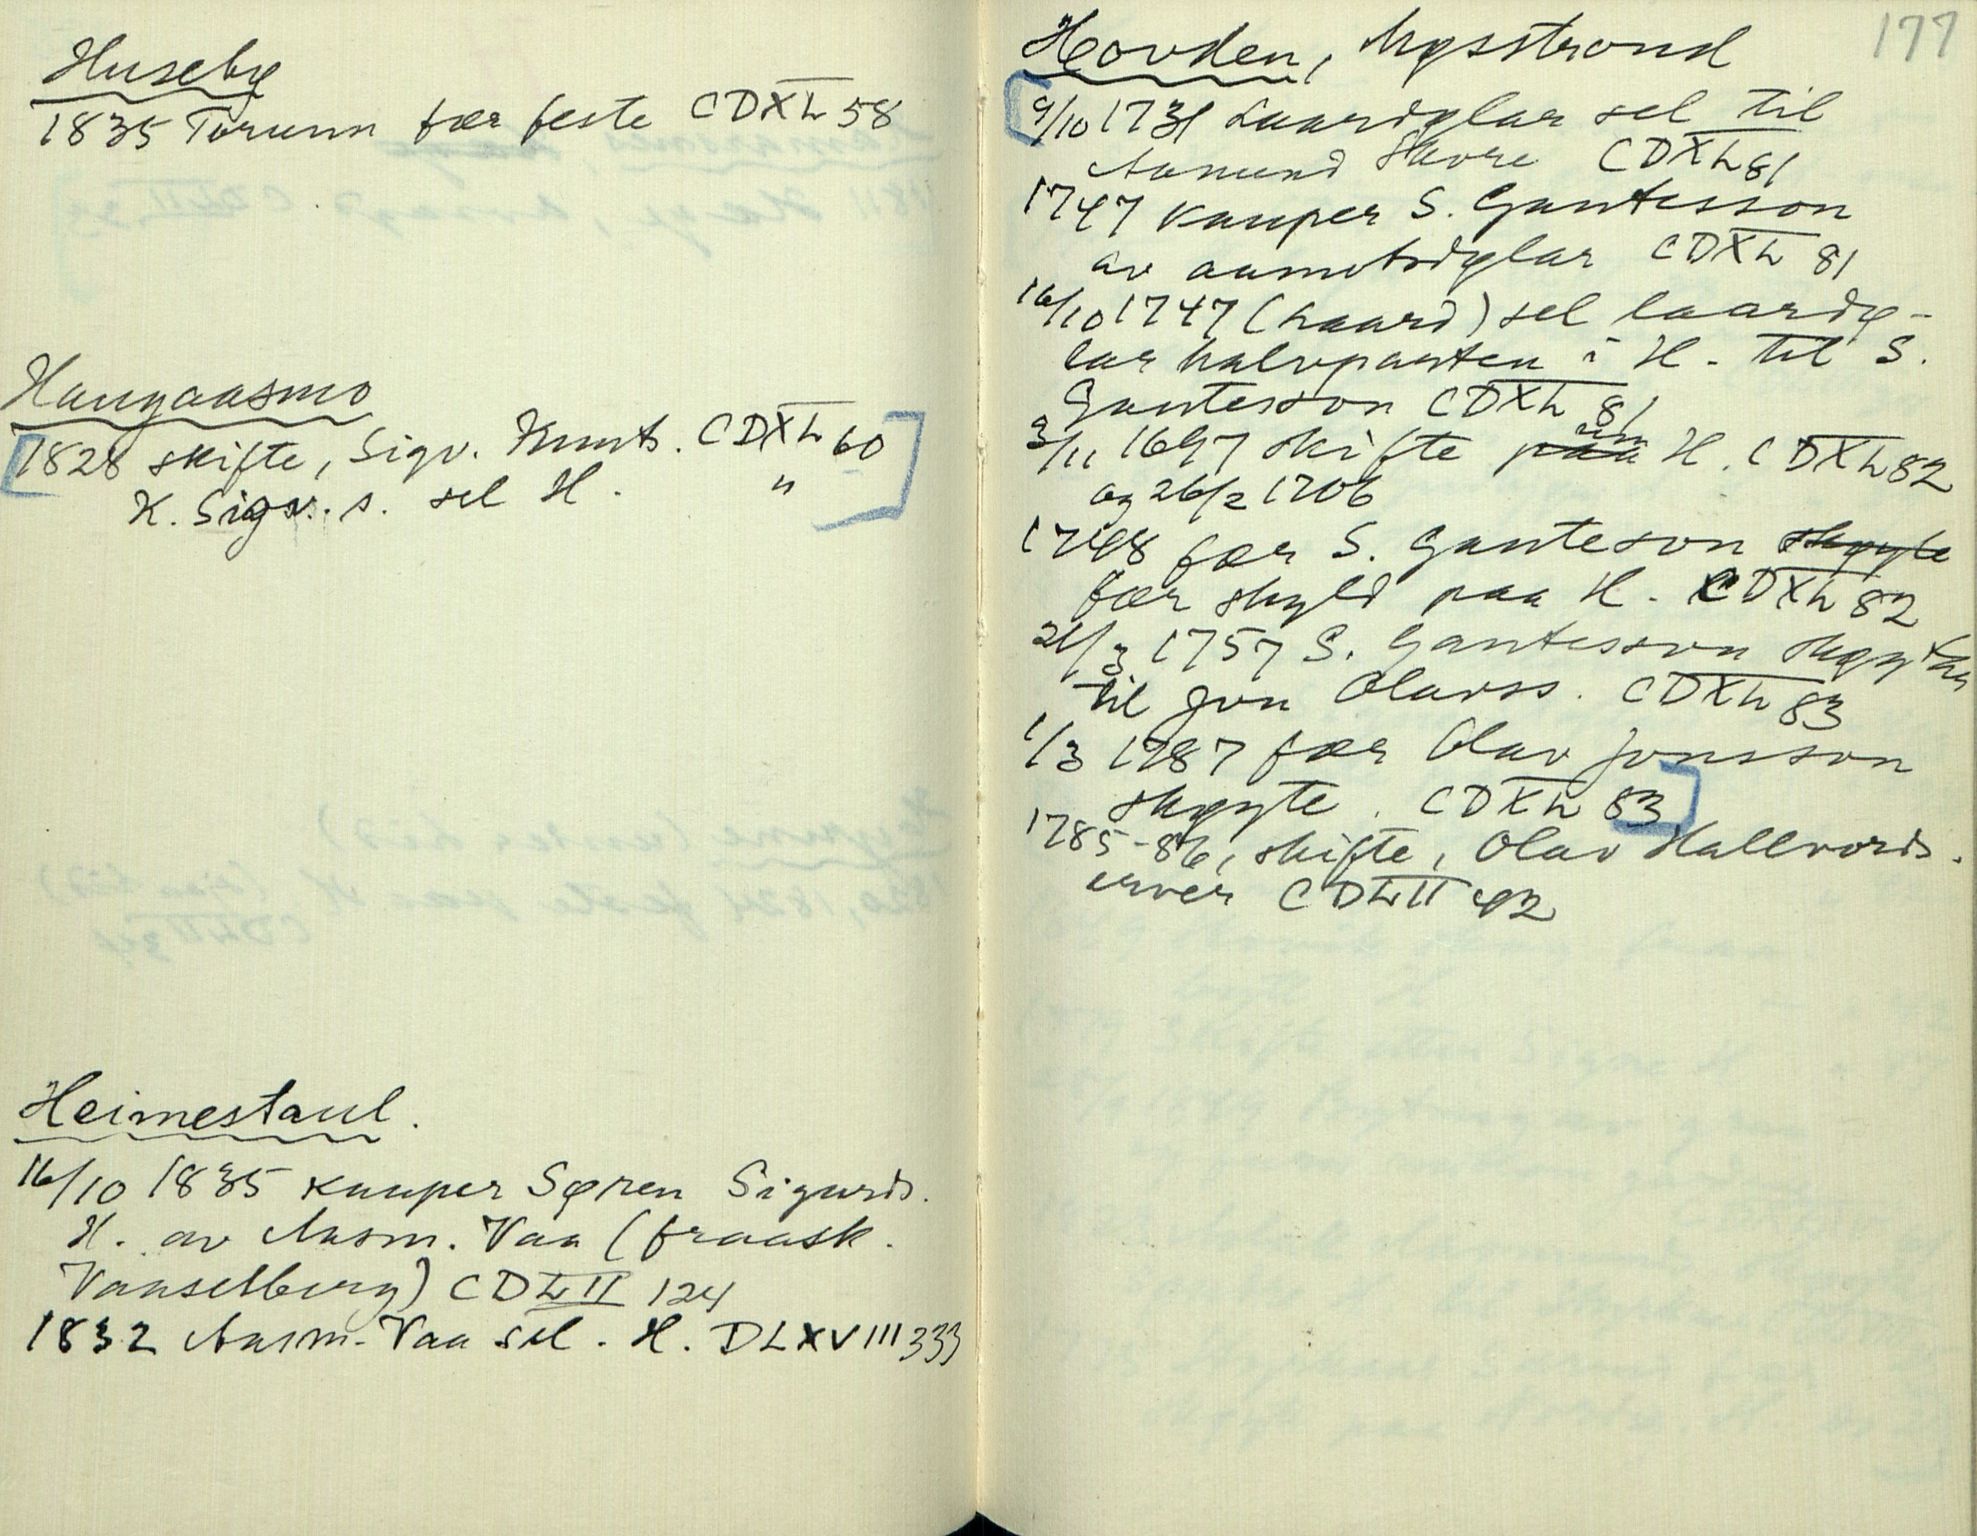 Huseby
1835 Torunn fær feste CDXL 58
Haugaasmo
1828 skifte, Sigv. Knuts. CDXL 60
K. Sigv. s. sel H. "
Heimestaul.
16/10 1835 kauper Søren Sigurds.
H. av Aasm. Vaa (fraask.
Vaaselberg) CDLII 124
1832 Aasm. Vaa sel. H. DLXVIII 333
177
Hovden, Møsstrond
9/10 1731 Laardølar sel til
Aamund Havre CDXL 81
1747 kauper S. Gunteson
av aamotsdølar CDXL 81
16/10 1747 (Laard) sel laardø-
lar halvparten i H. til S.
Gunteson CDXL 81
3/11 1697 skifte paa um H. CDXL 82
og 26/2 1706
1748 fær S. Gunteson skøyte
fær skyld paa H. CDXL 82
21/3 1757 S. Gunteson skøytar
til Jon Olavss. CDXL 83
1/3 1787 fær Olav Jonsson
skøyte. CDXL 83
1785-86, skifte, Olav Hallvords.
erver CDLII 42